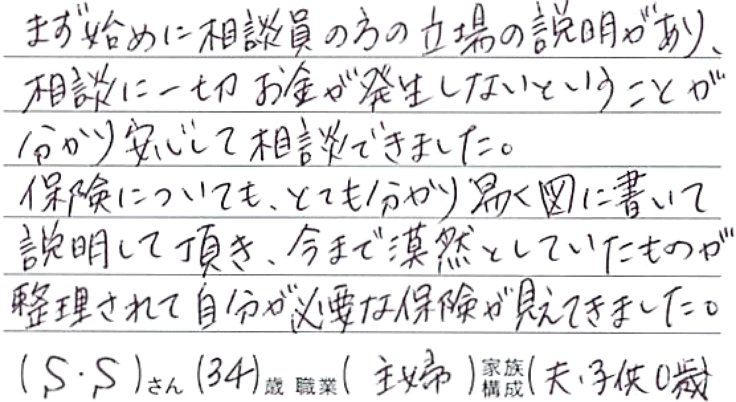 まず始めに相談員の方の立場の説明があり、
相談に一切お金が発生しないということが
分かり安心して相談できました。
保険についても、とても分かり易く図に書いて
説明して頂き、今まで漠然としていたものが
整理されて自分が必要な保険が見えてきました。
(S・S)さん(34)歳 職業(主婦)家族構成(夫・子供0歳